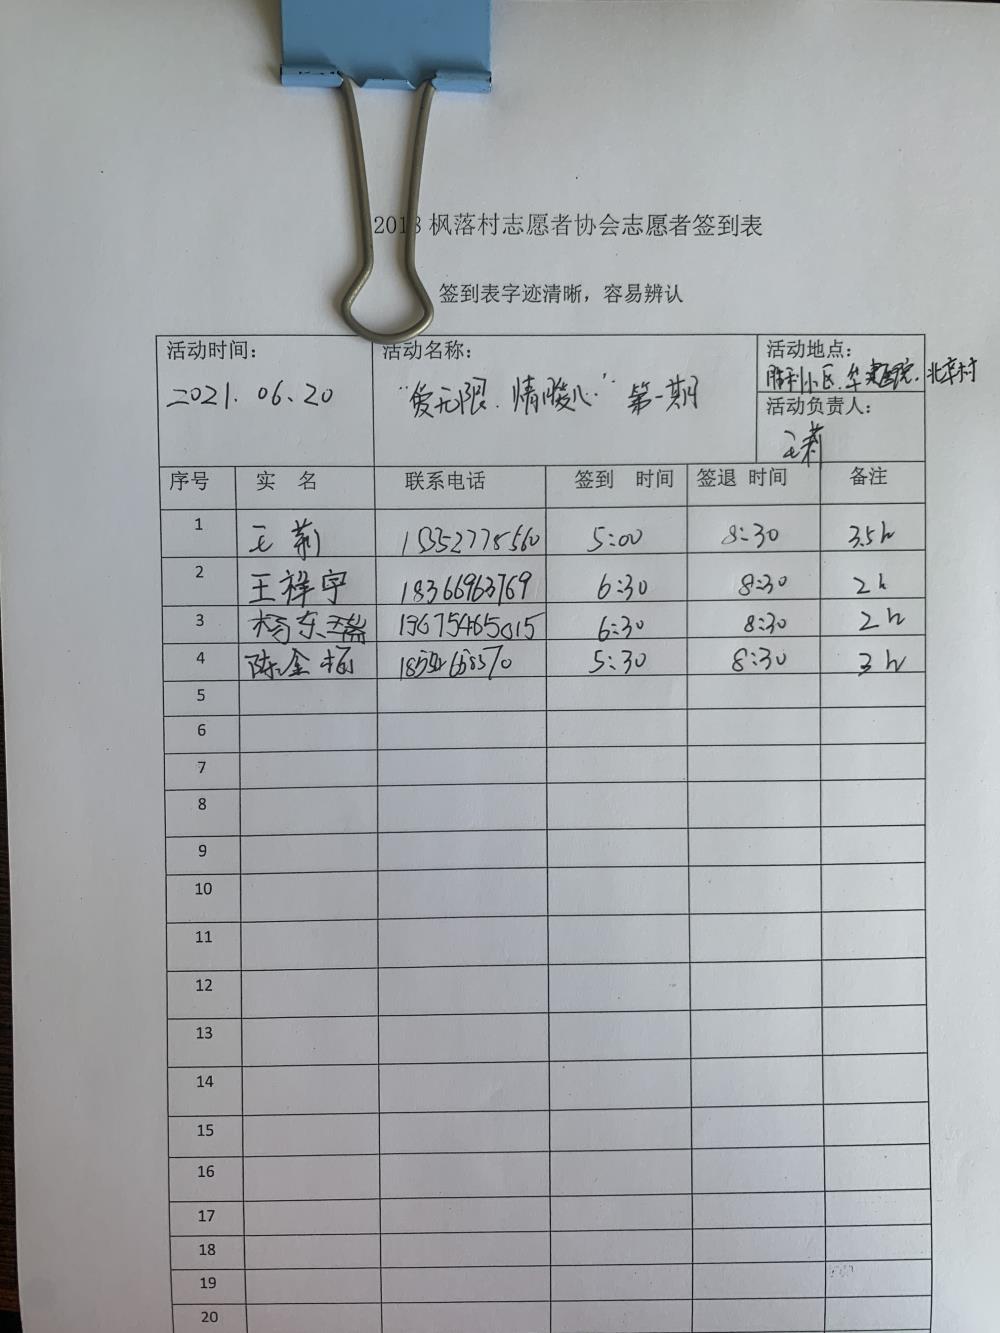 2018 枫落村志愿者协会志愿者签到表
签到表字迹清晰，容易辨认
活动时间：
2021.06.20
活动名称：
“爱无限.情暖心” 第一期
活动地点：
胜利小区.华建医院.北辛村
活动负责人：
王莉
序号 实 名 联系电话 签到 时间 签退 时间 备注
1 王莉 5:00 8:30 3.5h
2 王祥宇 18366963769 6:30 8:30 2h
3 杨东瑞 6:30 8:30 2h
4 陈金 5:30 8:30 3h
5
6
7
8
9
10
11
12
13
14
15
16
17
18
19
20